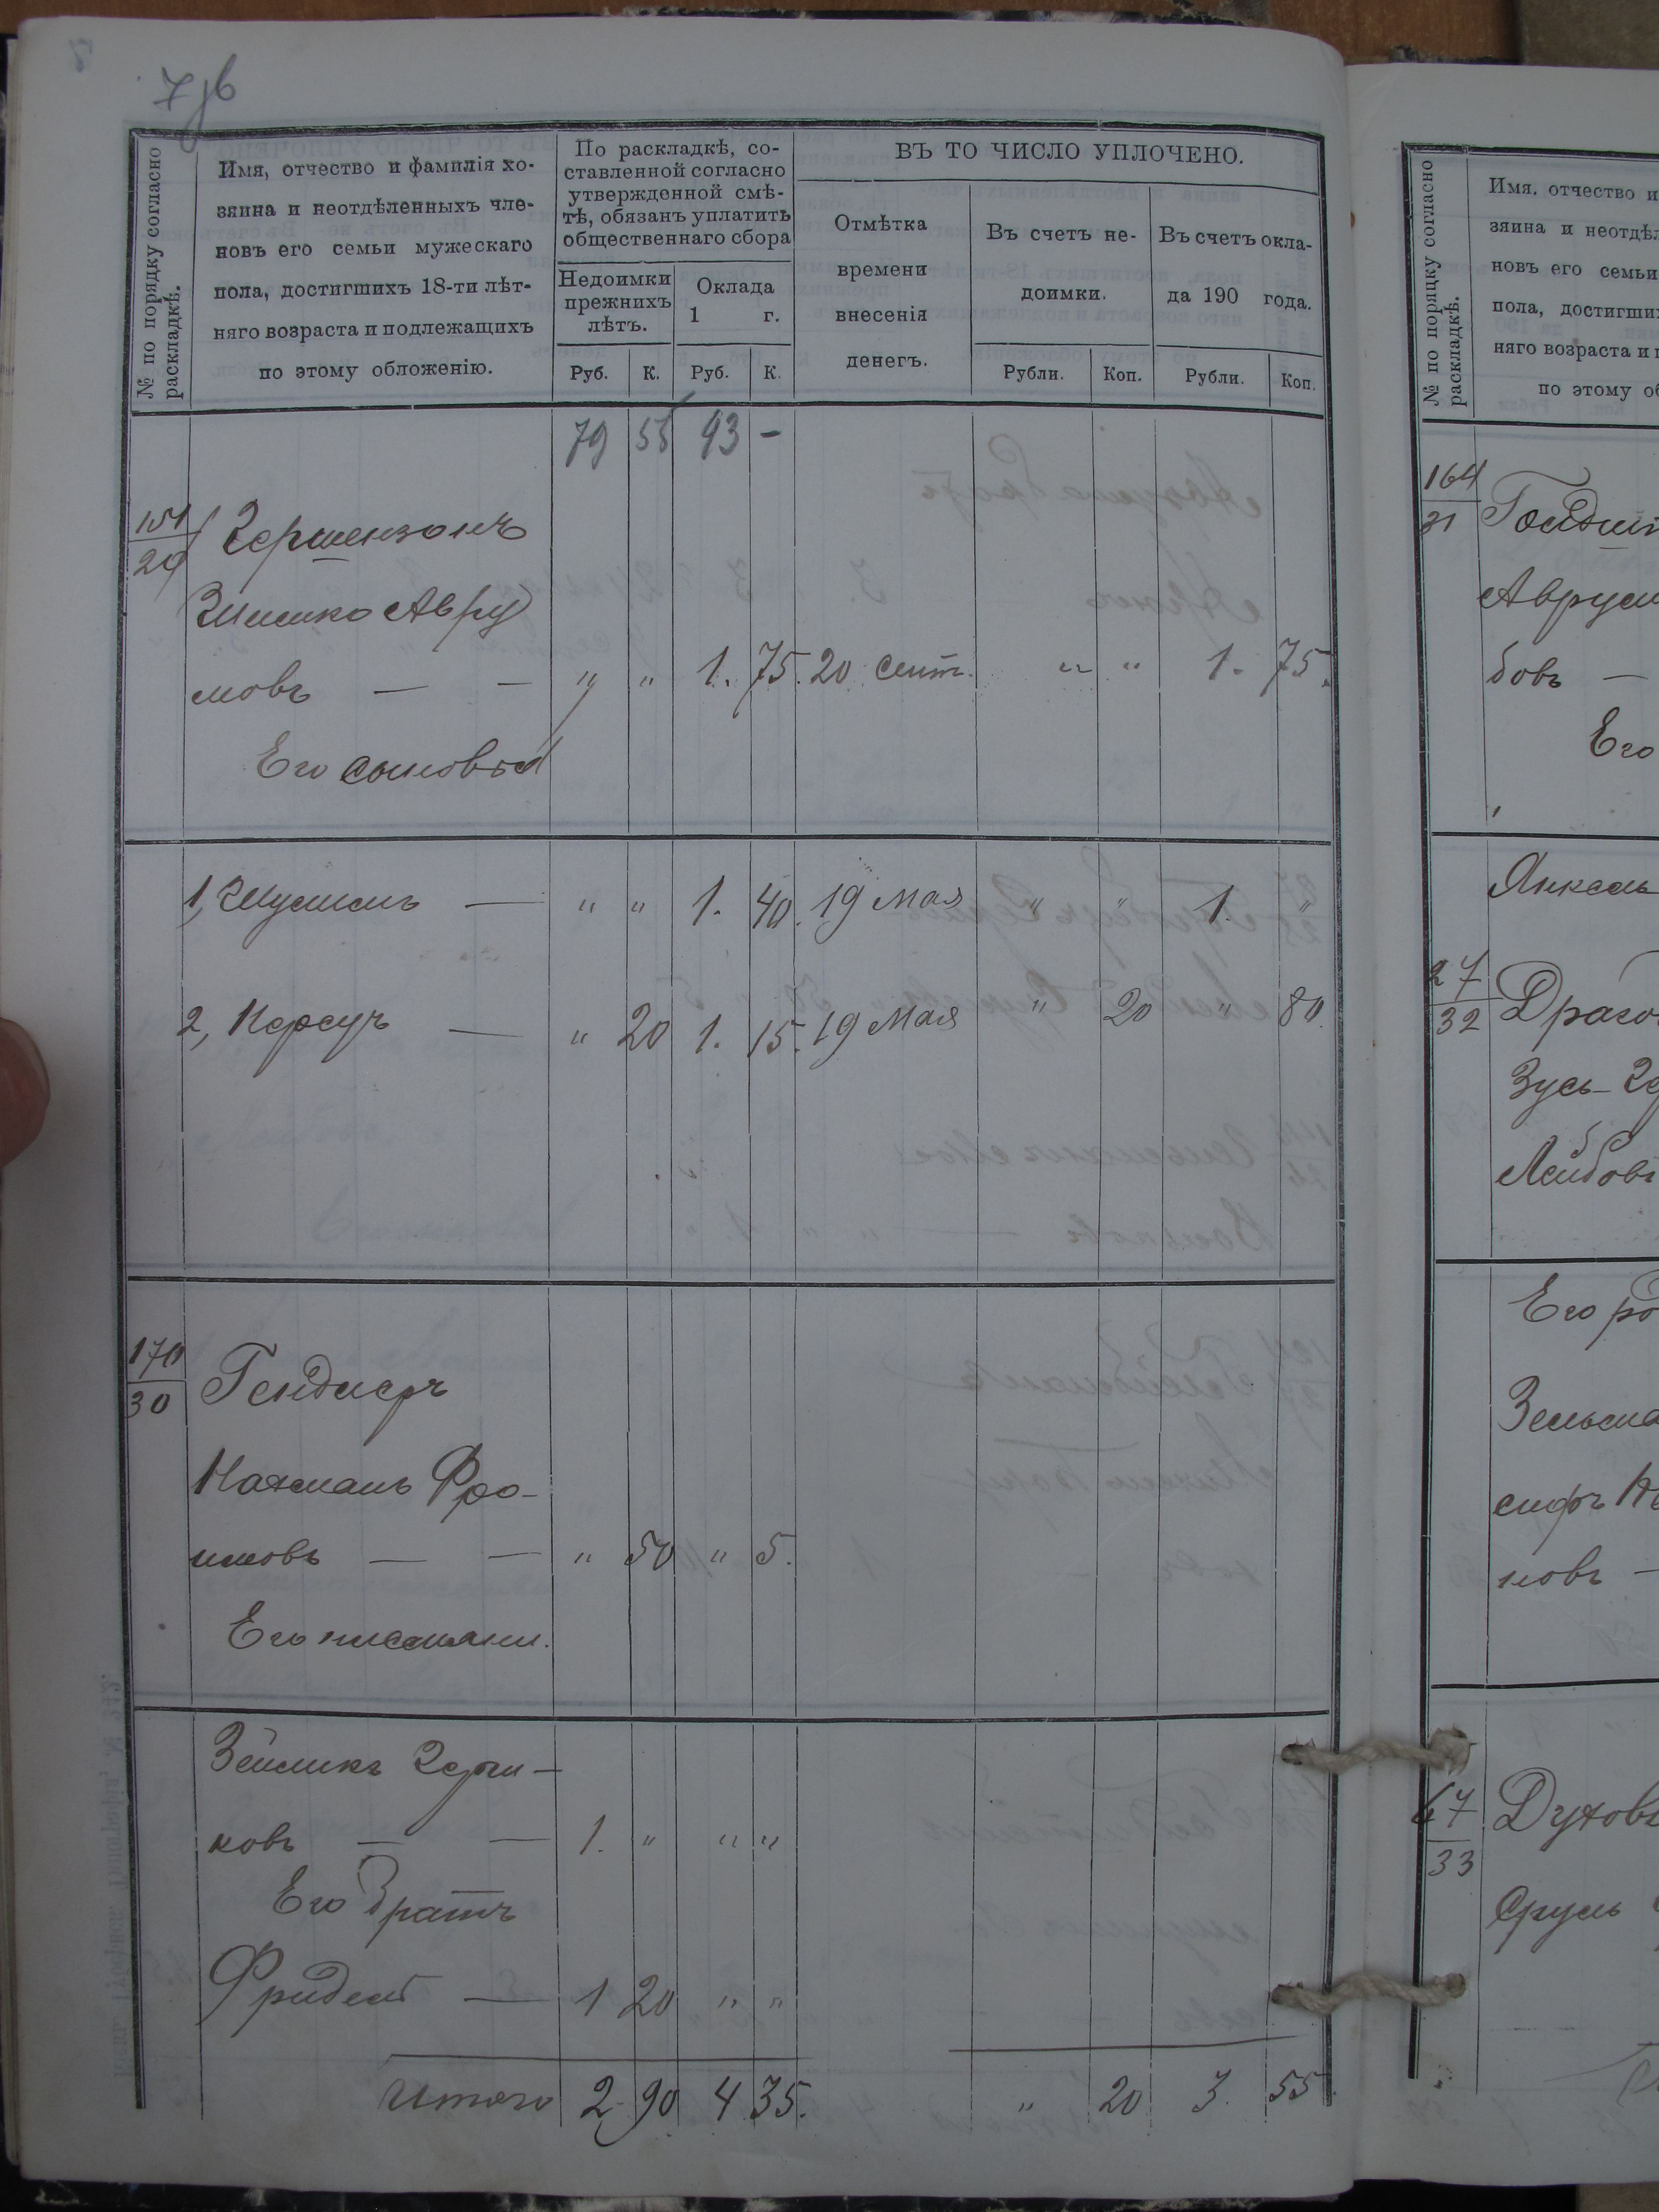 7 зв
№ по порядку согласно раскладкѣ.
Имя, отчество и фамилія хо-
зяина и неотдѣленныхъ чле-
новъ его семьи мужескаго
пола, достигшихъ 18-ти лѣт-
няго возраста и подлежащихъ
по этому обложенію.
По раскладкѣ, со-
ставленной согласно
утвержденной смѣ-
тѣ, обязанъ уплатить
общественнаго сбора
Недоимки
прежнихъ
лѣтъ.
Оклада
1 г.
Руб. К. Руб. К.
ВЪ ТО ЧИСЛО УПЛОЧЕНО.
Отмѣтка
времени
внесенія
денегъ.
Въ счетъ не-
доимки.
Рубли. Коп.
Въ счетъ окла-
да 190 года.
Рубли. Коп.
79 55 93 -
151/29 Гершензонъ
Шимко Авру
мовъ — — " " 1. 75. 20 Сент. " " 1. 75.
Его сыновья
1, Шулимъ — " " 1. 40. 19 Мая " " 1. "
2, Нерсуръ — " 20 1. 15. 19 Мая " 20 " 80.
170/30 Гендлеръ
Нахманъ Фро-
имовъ — — " 50 " 5.
Его племян.
Зейликъ Герш-
ковъ — — 1. " " "
Его братъ
Фридель — 1 20 " "
Итого 2 90 4 35. " 20 3. 55.
№ по порядку согласно раскладкѣ.
Имя, отчество и
зяина и неотдѣл
новъ его семьи
пола, достигши
няго возраста и п
по этому об
164/31
Аврум
бовъ —
Его
Янкель
27/32 Драго
Зусь-Ге
Лейбовъ
Его
Зельма
новъ —
67/33 Духов
Сруль